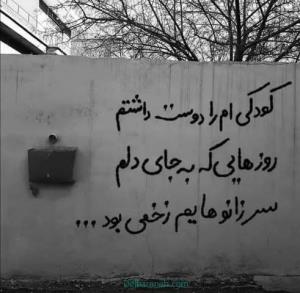 کودکی ام را دوست داشتم
روزهایی که به جای دلم
سر زانوهایم زخمی بود ...
delbaraneh.com